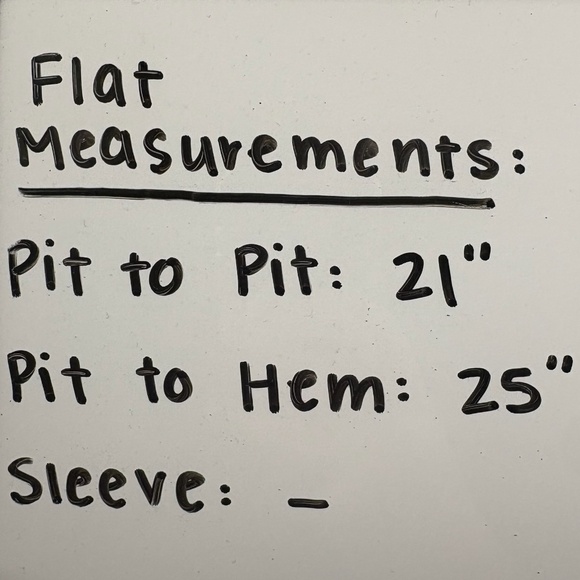 Flat
Measurements:
Pit to Pit: 21"
Pit to Hem: 25"
Sleeve: –